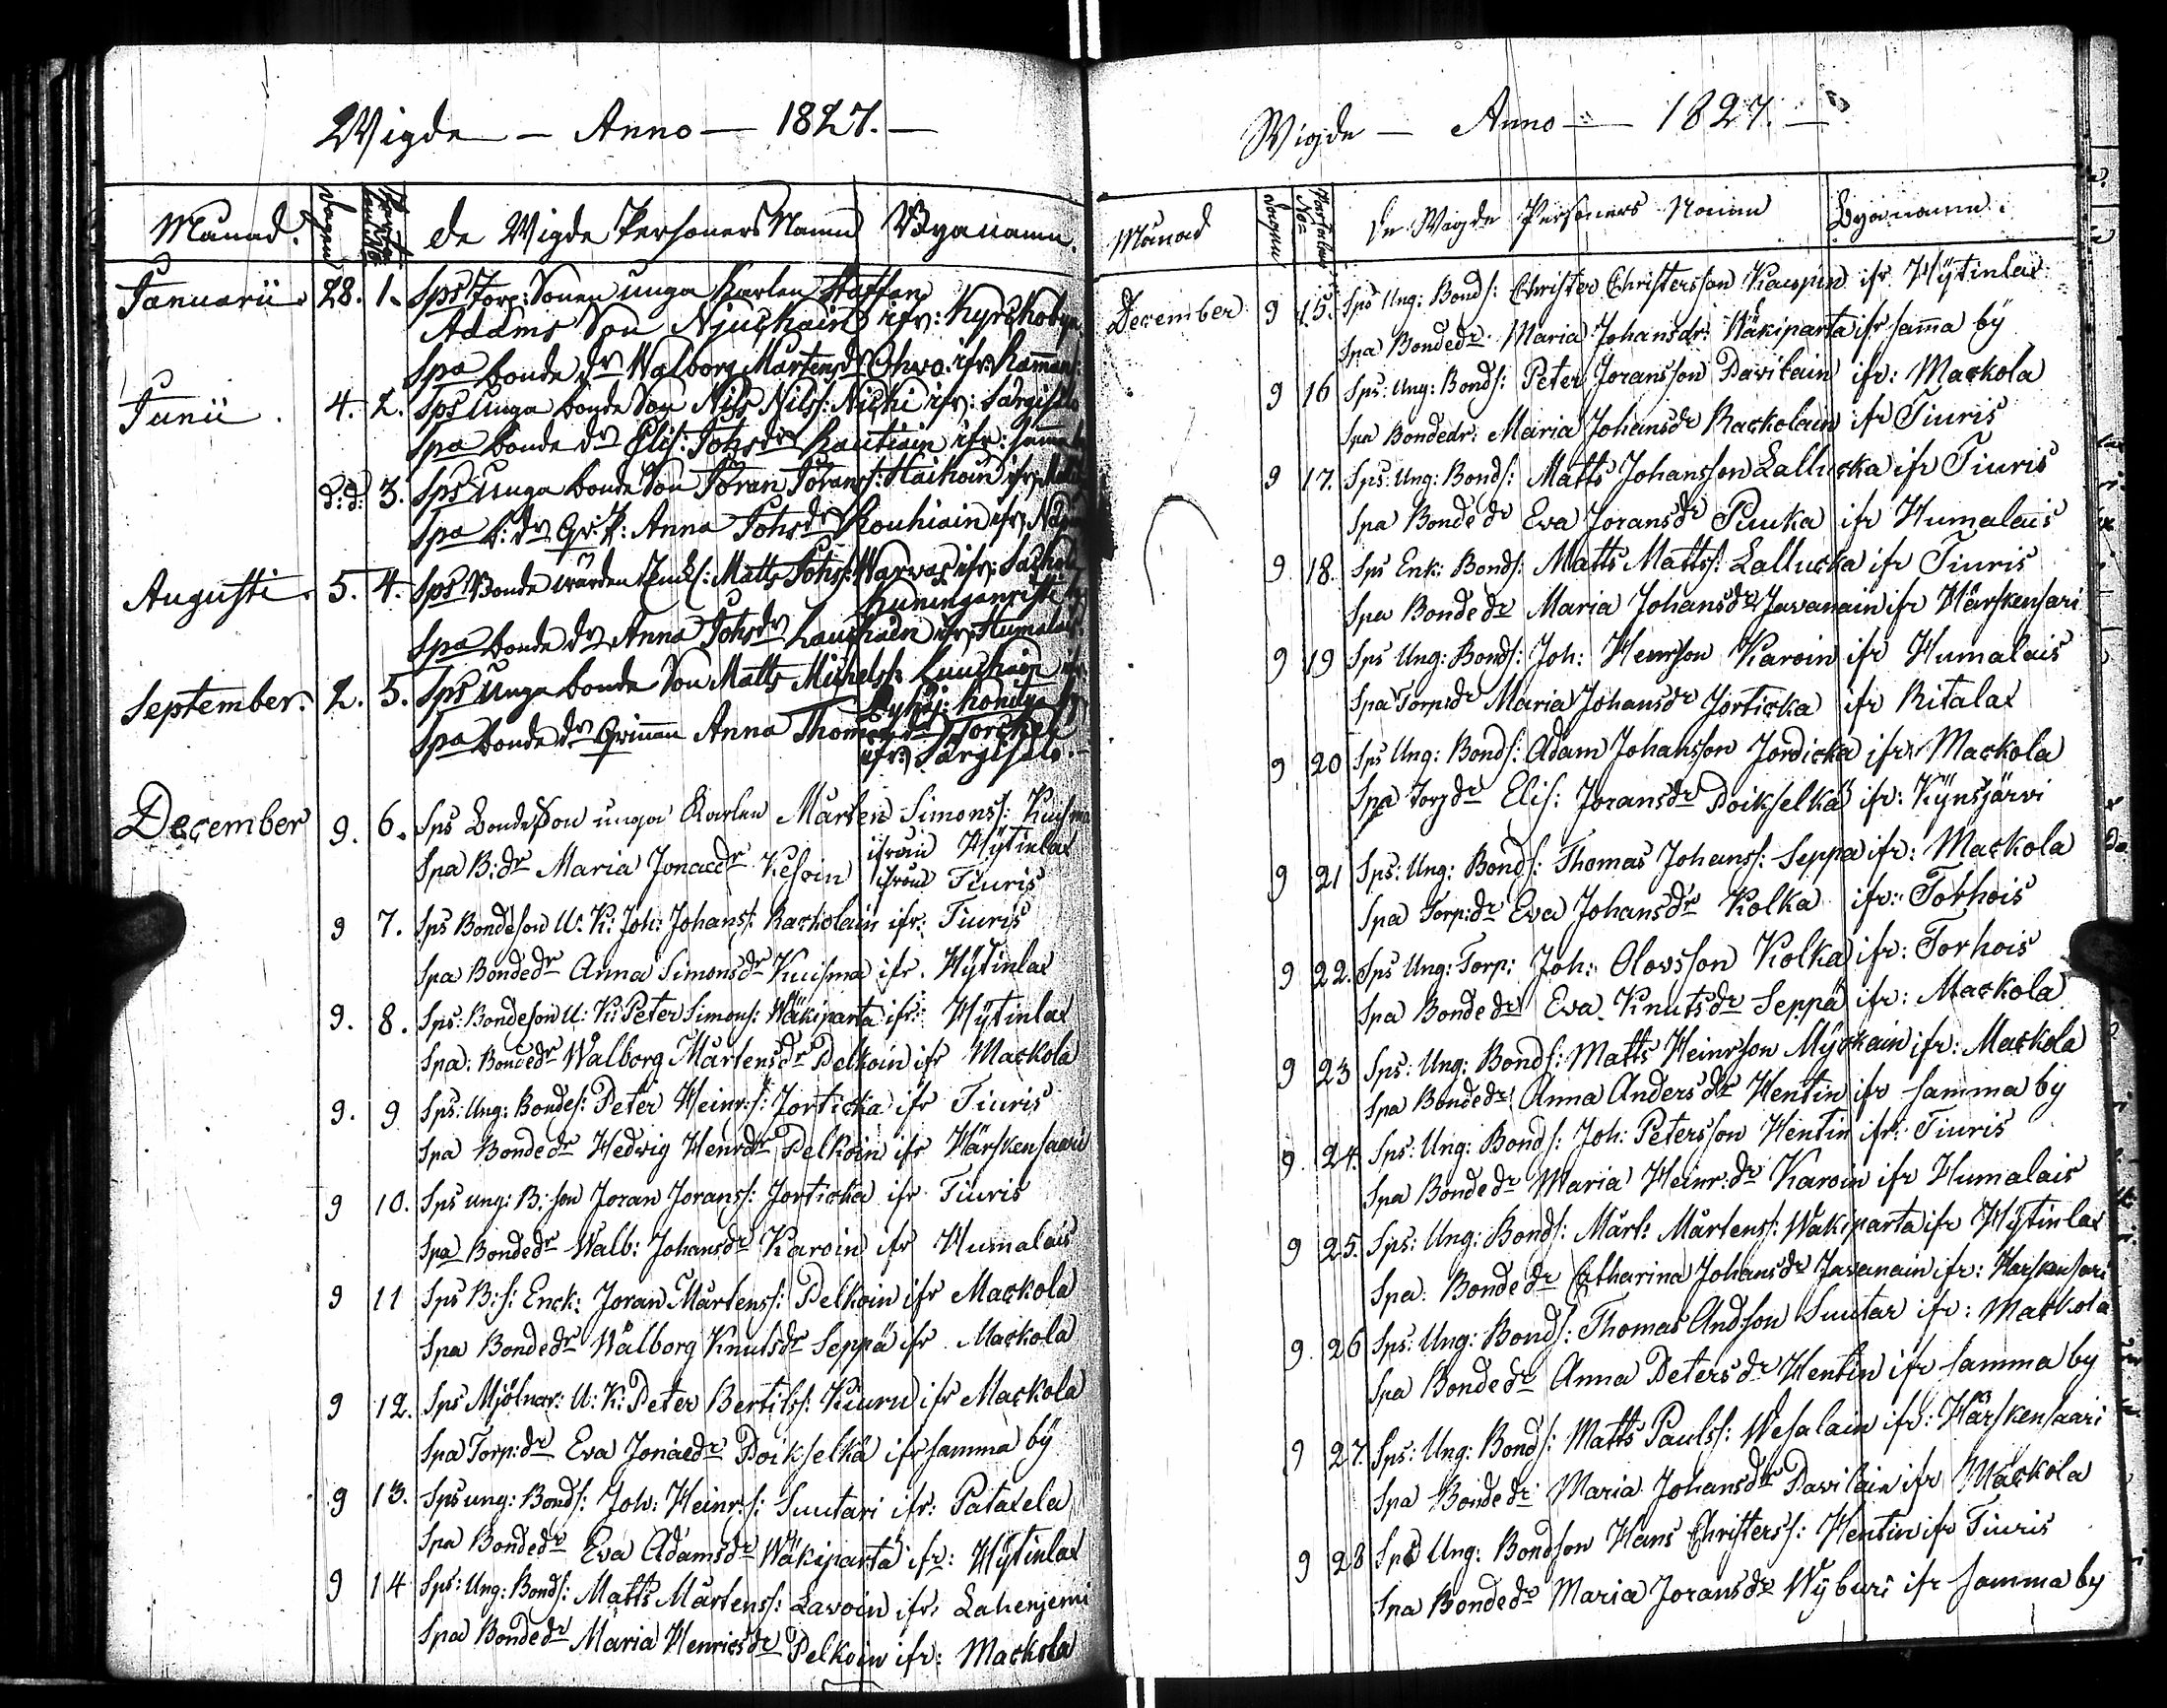 Wigde - Anno - 1827. -
Månad. Dagen De Wigde Personers Namn Byanamn.
Januarii. 28. 1. Sps Torp: Sonen unga Karlen Staffan
Adams Son Njuskain ifr: Kyrckobyn
Spa bonde dr Walborg Mårtensdr Ohvo ifr:
Junii. 4. 2. Sps Unga bonde Son Nils Nilss: Nicki ifr: Särgisalo
Spa bonde dr Elis: Johsdr Rautiain ifr: samma by
d:d: 3. Sps Unga bonde Son Jöran Jöranss: Haikoin ifr:
Spa b: dr Qv: P: Anna Johsdr Rouhiain ifr:
Augusti. 5. 4. Sps Bonde Matts Johss: Warvas ifr: Sackola
Spa bonde dr Anna Johsdr Lauskain ifr: Humalais.
September. 2. 5. Sps Unga bonde Son Matts Michelss: Luuskain ifr
Spa bonde dr Qvinnan Anna Thomasdr Torckel
ifr: Särgisalo.
December 9. 6. Sps Bonde Son unga Karlen Mårten Simonss: Kuisma
ifrån Hÿtinlax
Spa B: dr Maria Jonaedr Kesoin ifrån Tiuris
9 7. Sps Bondeson U: K: Joh: Johanss: Rackolain ifr: Tiuris
Spa Bondedr Anna Simonsdr Kuisma ifr. Hÿtinlax
9. 8. Sps: Bondeson U: K: Peter Simons: Wäkiparta ifr: Hÿtinlax
Spa: Bondedr Walborg Mårtensdr Pelkoin ifr Mackola
9. 9 Sps: Ung: Bondes: Peter Heinr:s: Jorticka ifr Tiuris
Spa Bondedr Hedvig Henrdr Pelkoin ifr Härskensaari
9 10. Sps ung: B: son Joran Joranss: Jorticka ifr Tiuris
Spa Bondedr Walb: Johansdr Karoin ifr Humalais
9 11 Sps B:s: Enck: Joran Mårtenss: Pelkoin ifr Mackola
Spa Bondedr Wålborg Knutsdr Seppä ifr Mackola
9 12. Sps Mjölnar: U: K: Peter Bertilss: Kiuru ifr Mackola
Spa Torp:dr Eva Jonaedr Poikselkä ifr samma bÿ
9 13. Sps ung: Bonds: Joh: Heinr:s: Suutari ifr: Pataxela
Spa Bondedr Eva Adamsdr Wäkiparta ifr: Hÿtinlax
9 14 Sps: Ung: Bonds: Matts Mårtenss: Lavoin ifr: Lahenjemi
Spa Bondedr Maria Henricsdr Pelkoin ifr: Mackola
Wigde - Anno - 1827. -
Månad Dagen De Wigde Personers Namn Byanamn.
December 9 15. Sps Ung: Bonds: Christer Christersson Kaupin ifr Hÿtinlax
Spa Bondedr Maria Johansdr: Wäkiparta ifr sama bÿ
9 16 Sps: Ung: Bonds: Peter Joransson Pavilain ifr: Mackola
Spa Bondedr: Maria Johansdr Rackolain ifr Tiuris
9 17. Sps: Ung: Bonds: Matts Johansson Lallucka ifr Tiuris
Spa Bondedr Eva Joransdr Piuka ifr Humalais
9. 18. Sps Enk: Bonds: Matts Mattss: Lallucka ifr Tiuris
Spa Bondedr Maria Johansdr Javanain ifr Härskensari
9 19 Sps Ung: Bonds: Joh: Henrson Karoin ifr Humalais
Spa Torpdr Maria Johansdr Jorticka ifr Ritalax
9 20 Sps Ung: Bonds: Adam Johansson Jordicka ifr Mackola
Spa Torpdr Elis: Joransdr Poikselkä ifr: Kÿnsjärvi
9 21 Sps: Ung: Bonds: Thomas Johanss: Seppa ifr: Mackola
Spa Torp:dr Eva Johansdr Kolka ifr: Torhois
9 22. Sps Ung: Torp: Joh: Olovsson Kolka ifr: Torhois
Spa Bondedr Eva Knutsdr Seppä ifr: Mackola
9 23 Sps: Ung: Bonds: Matts Heinrson Mÿckain ifr: Mackola
Spa Bondedr Anna Andersdr Hentin ifr samma by
9. 24. Sps: Ung: Bonds: Joh: Petersson Hentin ifr: Tiuris
Spa Bondedr Maria Heinr:dr Karoin ifr Humalais
9 25. Sps: Ung: Bonds: Mårt: Mårtens: Wakiparta ifr Hÿtinlax
Spa: Bondedr Catharina Johansdr Javanain ifr: Harskensari
9. 26 Sps: Ung: Bonds: Thomas Andson Suutar ifr: Mackola
Spa Bondedr Anna Petersdr Hentin ifr samma by
9 27. Sps: Ung: Bonds: Matts Paulss: Wesalain ifr: Härskensaari
Spa Bondedr Maria Johansdr Pavilain ifr Mackola
9 28 Sps Ung: Bondson Hans Christerss: Hentin ifr Tiuris
Spa Bondedr Maria Joransdr Wÿburi ifr samma by